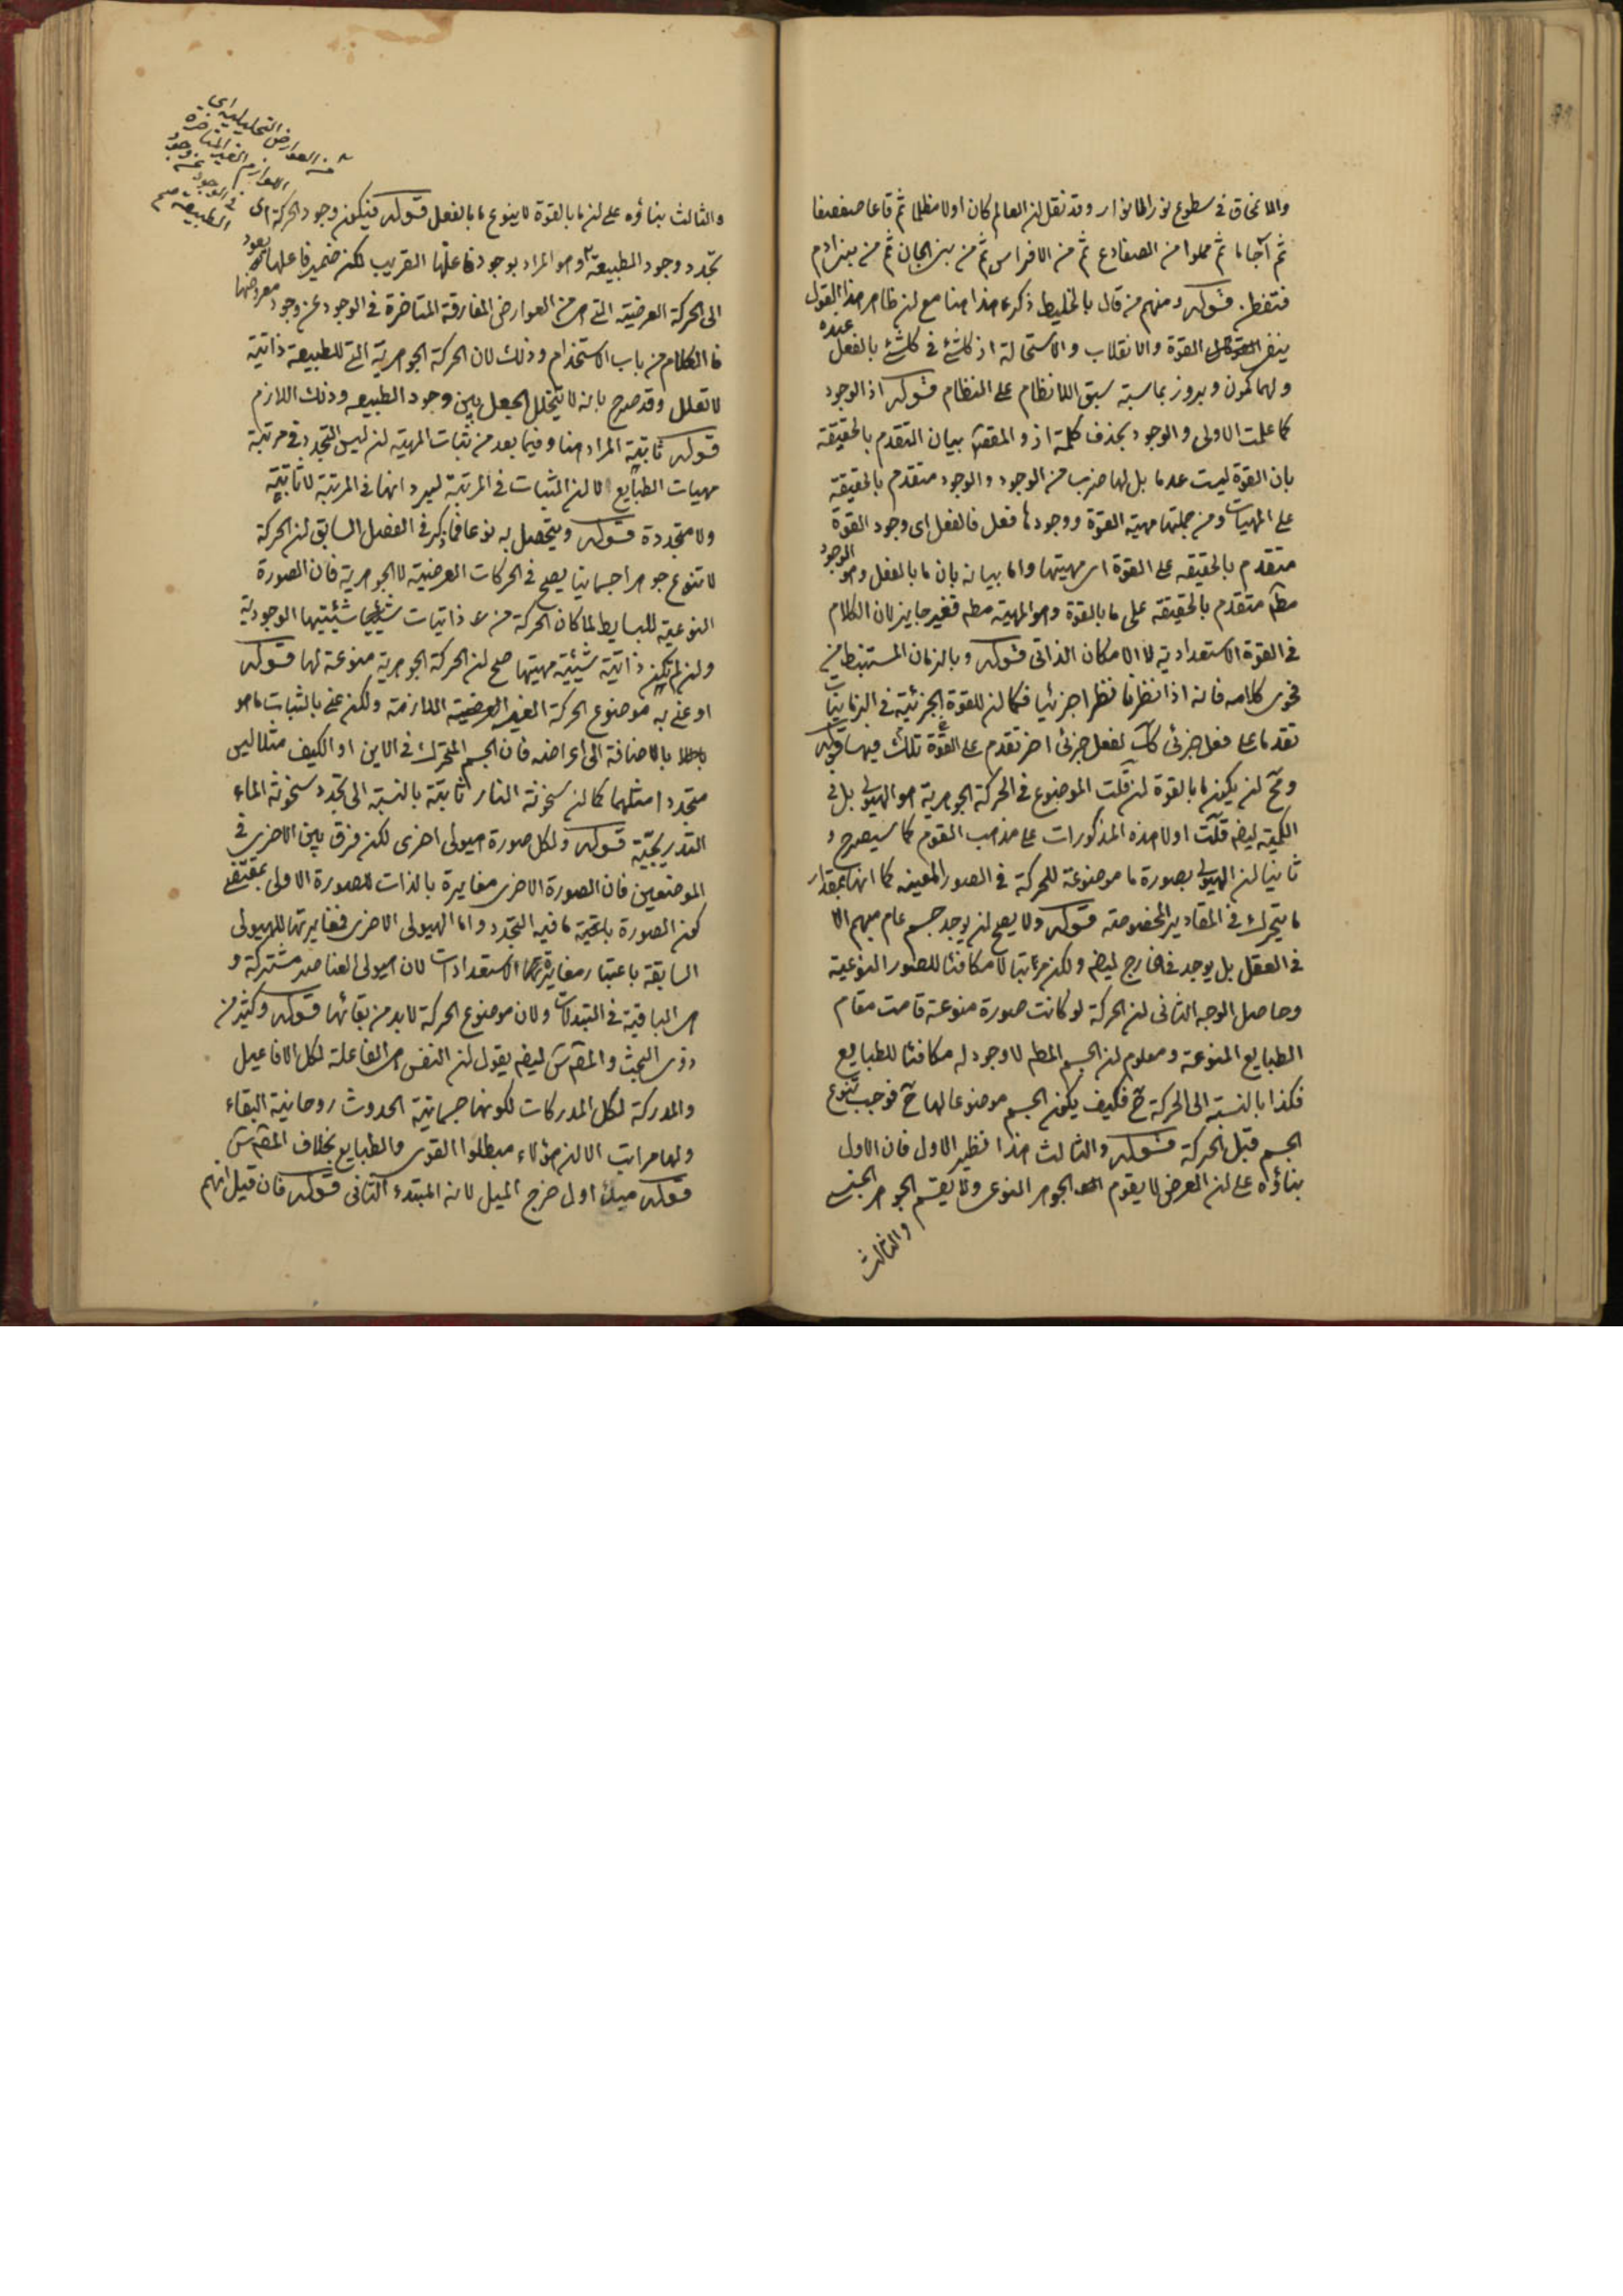 والانمحاق في سطوع نور الانوار وقد نقل ان العالم كان اولا مظلما ثم قاعا صفصفا
ثم آجاما ثم مملوا من الضفادع ثم من الافراس ثم من بني الجان ثم من بني ادم
فتفطن قوله ومنهم من قال بالخليط ذكر هذا هنا مع ان ظاهر هذا القول
ينفي القوة والانقلاب والاستحالة اذ كل شئ في كل شئ بالفعل عنده
ولها كمون وبروز بمناسبة سبق اللانظام على النظام قوله اذ الوجود
كما علمت الاولى والوجود بحذف كلمة اذ والمقصود بيان التقدم بالحقيقة
بان القوة ليست عدما بل لها ضرب من الوجود والوجود متقدم بالحقيقة
على المهيات ومن جملتها مهية القوة ووجودها فعل فالفعل اى وجود القوة
متقدم بالحقيقه على القوة اى مهيتها واما بيانه بان ما بالفعل وهو الوجود
مطلقا متقدم بالحقيقة على ما بالقوة وهو المهية مطه فغير جايز لان الكلام
في القوة الاستعدادية لا الامكان الذاتى قوله وبالزمان المستنبط من
فحوى كلامه فانه اذا نظرنا نظرا جزئيا فكما ان للقوة الجزئية في الزمانيات
تقدما على فعل جزئى كك لفعل جزئى اخر تقدم على القوة تلك فيها قوله
وتح ان يكون ما بالقوة ان قلت الموضوع في الحركة الجوهرية هو الهيولى بل في
الكمية ايضه قلت اولا هذه المذكورات على مذهب القوم كما سيصرح و
ثانيا ان الهيولى بصورة ما موضوعة للحركة في الصور المعينه كما انها بمقدار
ما يتحرك في المقادير المخصوصة قوله ولا يصح ان يوجد جسم عام مبهم الا
في العقل بل يوجد في الخارج ايضه ولكن مرتبا لا مكافئا للصور النوعية
وحاصل الوجه الثانى ان الحركة لو كانت صورة منوعة قامت مقام
الطبايع المنوعة ومعلوم ان الجسم المطه لا وجود له مكافئا للطبايع
فكذا بالنسبة الى الحركة ح فكيف يكون الجسم موضوعا لها ح فوجب تنوع
الجسم قبل الحركة قوله والثالث هذا نظير الاول فان الاول
بناؤه على ان العرض لا يقوم الجوهر النوعى ولا يقسم الجوهر الجنسى
والثالث
والثالث بناؤه على ان ما بالقوة لا ينوع ما بالفعل قوله فيكون وجود الحركة اى
تجدد وجود الطبيعة وهو المراد بوجود فاعلها القريب لكن ضمير فاعلها يعود
الى الحركة العرضية التي هي من العوارض المفارقة المتاخرة في الوجود عن وجود معروضها
فالكلام من باب الاستخدام وذلك لان الحركة الجوهرية التي للطبيعة ذاتية
لا تعلل وقد صرح بانه لا يتخلل الجعل بين وجود الطبيعه وذلك اللازم
قوله ثابتة المراد هنا وفيما بعد من ثبات المهية ان ليس التجدد في مرتبة
مهيات الطبايع لا ان الثبات في المرتبة ليرد انها في المرتبة لا ثابتة
ولا متجددة قوله ويتحصل به نوعا فما ذكر في الفصل السابق ان الحركة
لا تنوع جوهرا جسمانيا يصح في الحركات العرضية لا الجوهرية فان الصورة
النوعية للبسايط لما كان الحركة من ذاتيات شيئيتها الوجودية
وان لم تكن ذاتية شيئية مهيتها صح ان الحركة الجوهرية منوعة لها قوله
او عنى به موضوع الحركة الغير العرضية اللازمة ولكن عنى بالثبات ما هو
بالاضافة الى اعراضه فان الجسم المتحرك في الاين او الكيف مثلا ليس
متجددا مثلهما كما ان سخونة النار ثابتة بالنسبة الى تجدد سخونة الماء
التدريجية قوله ولكل صورة هيولى اخرى لكن فرق بين الاخرى في
الموضعين فان الصورة الاخرى مغايرة بالذات للصورة الاولى بمقتضى
كون الصورة باقية ما فيه التجدد واما الهيولى الاخرى فمغايرتها للهيولى
السابقة باعتبار مغايرة الاستعدادات لان هيولى العناصر مشتركة و
هى الباقية في التبدلات ولان موضوع الحركة لابد من بقائها قوله وكثير من
ذوى البحث والمقه س ايضه يقول ان النفس هى الفاعلة لكل الافاعيل
والمدركة لكل المدركات لكونها جسمانية الحدوث روحانية البقاء
ولها مراتب الا ان هؤلاء مبطلوا القوى والطبايع بخلاف المقه س
قوله ميلا اول خرج الميل لانه المبتدء الثانى قوله فان قيل انهم
من العوارض التحليلية اى
العوارض الغير المتاخرة
في الوجود عن وجود
الطبيعة صح